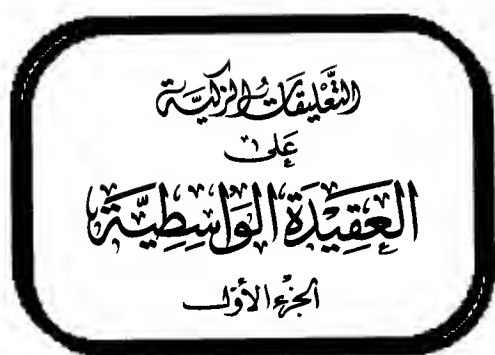 التَّعْلِيقَاتُ الزَّكِيَّة
عَلى
العَقِيْدَةِ الوَاسِطِيَّة
الجزء الأول